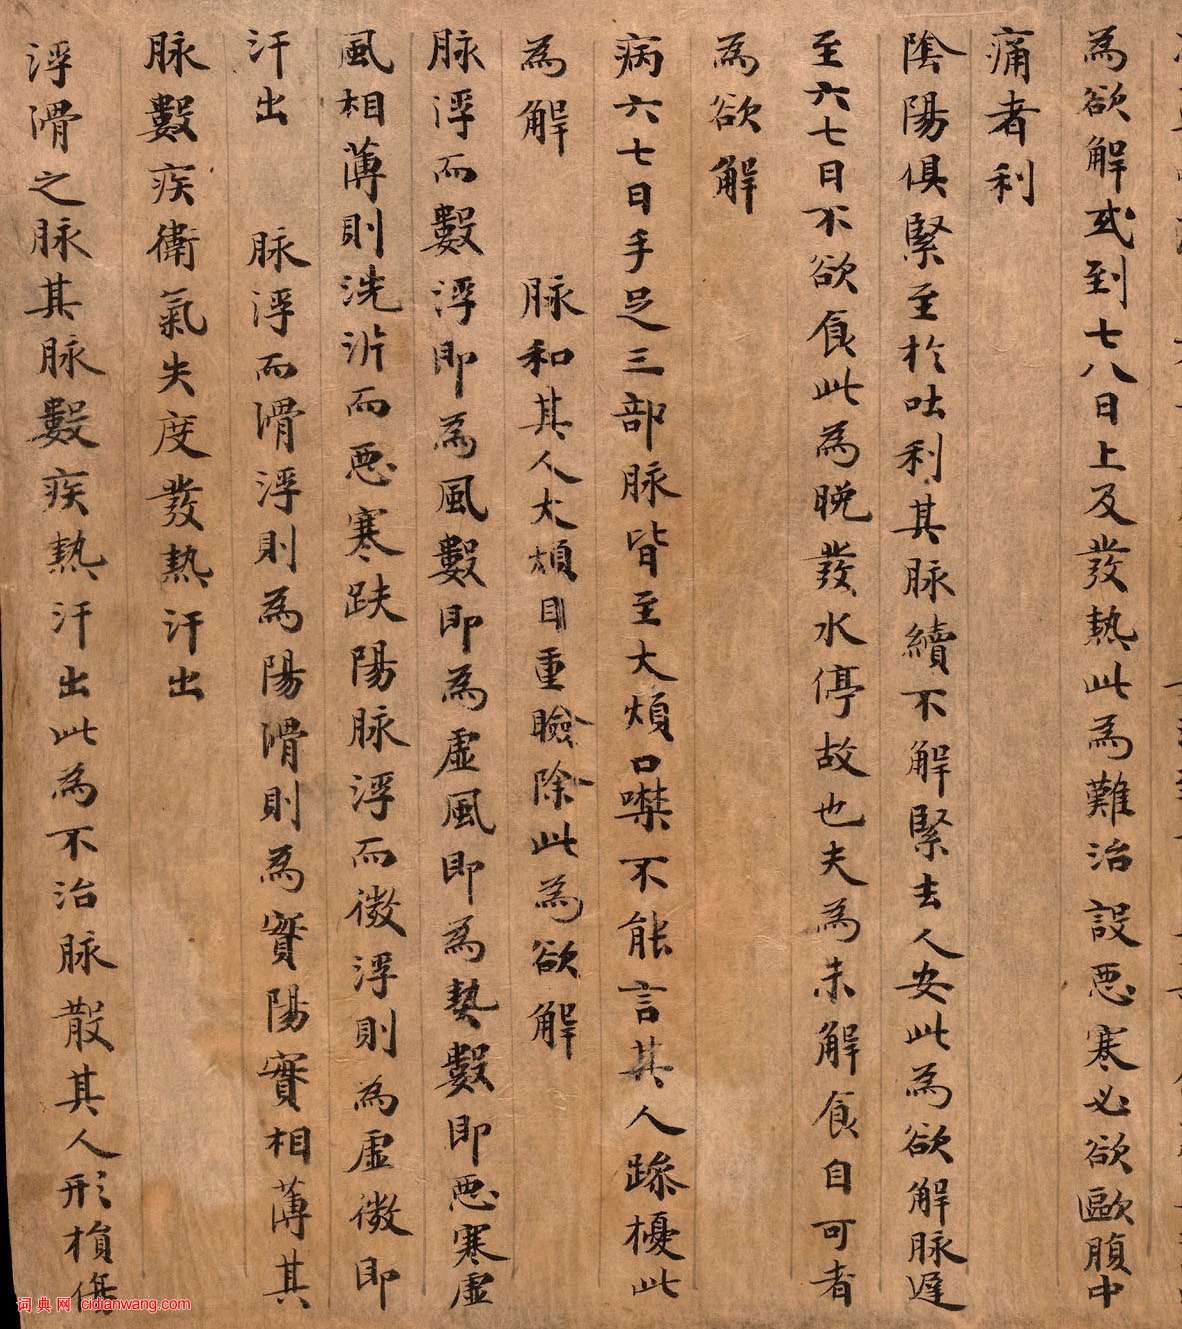 為欲解或到七八日上及發熱此為難治設惡寒必欲歐腹中
痛者利
陰陽俱緊至於吐利其脉續不解緊去人安此為欲解脉遲
至六七日不欲食此為晚發水停故也夫為未解食自可者
為欲解
病六七日手足三部脉皆至大煩口噤不能言其人躁擾此
為解 脉和其人大煩目重瞼除此為欲解
脉浮而數浮即為風數即為虛風即為熱數即惡寒虛
風相薄則洗淅而惡寒趺陽脉浮而微浮則為虛微即
汗出 脉浮而滑浮則為陽滑則為實陽實相薄其
脉數疾衛氣失度發熱汗出
浮滑之脉其脉數疾熱汗出此為不治脉散其人形損傷
词典网 cidianwang.com